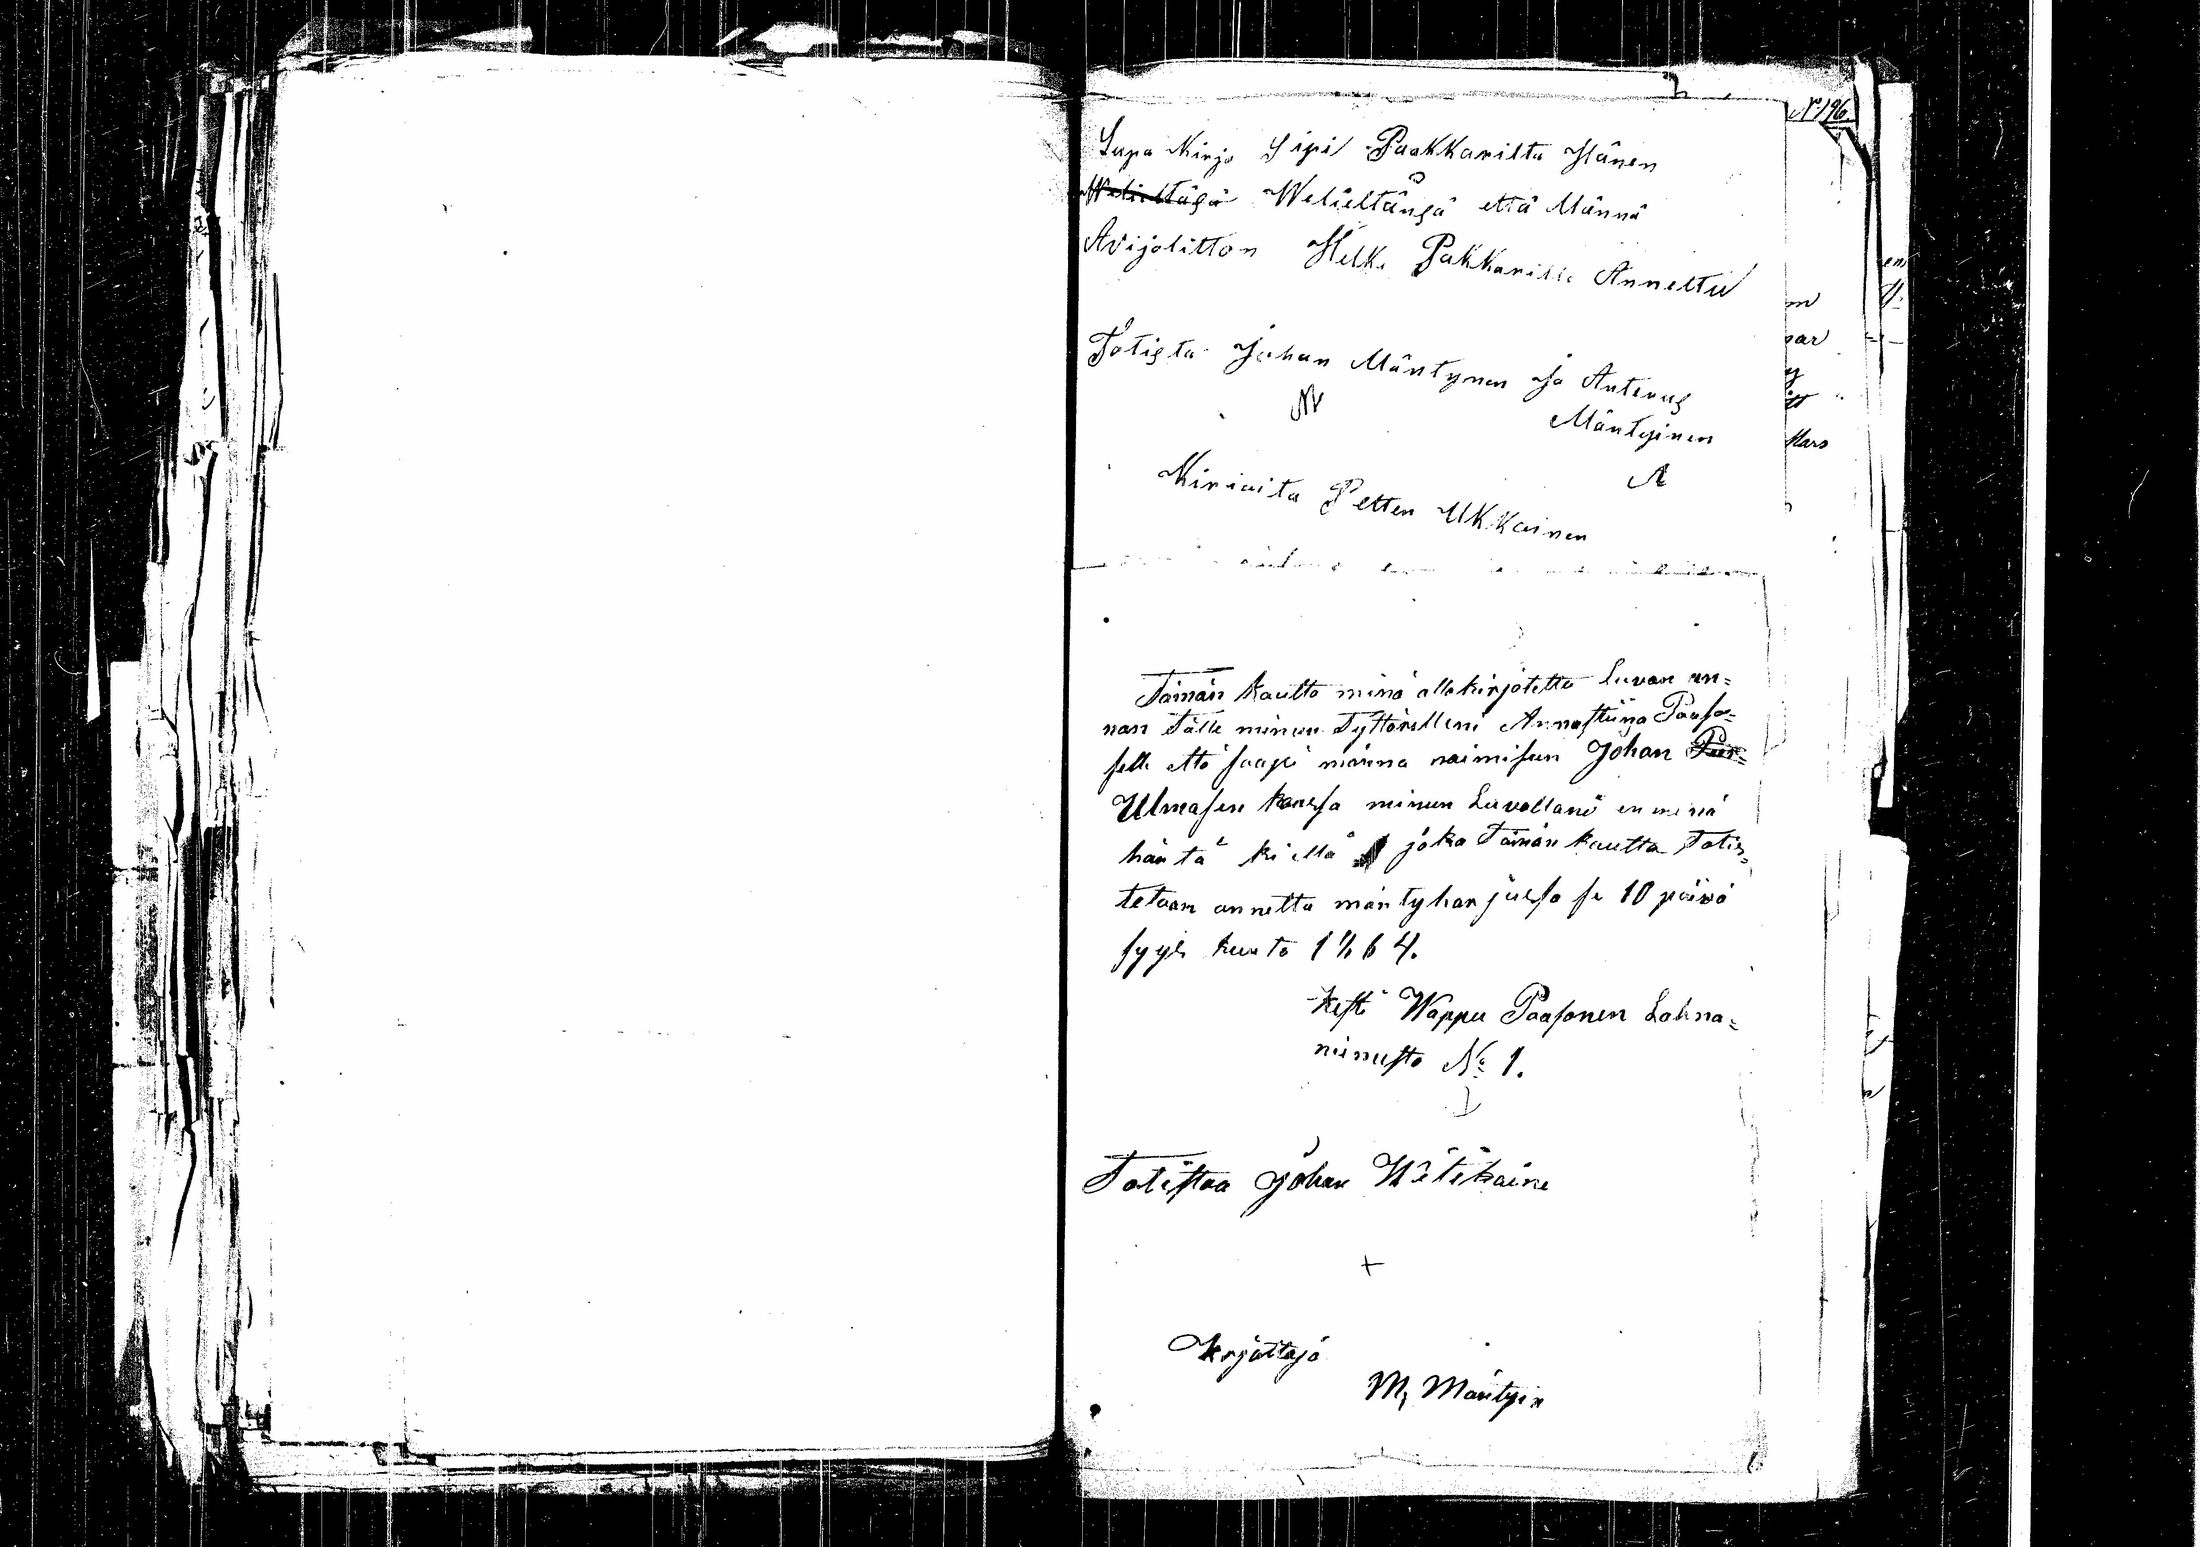 N:196.
Lupa Kirja Sipi Paakkarilta Hänen
Welieltäsä Welieltänsä että Männä
Avijolitton Helk. Pakkarille Annettu
Totista Johan Mäntynen ja Anterus
Mäntyinen
N
A
Kirioita Petter Ukkainen
Tämän kautta minä allakirjotettu luvan an=
nan Tälle minun Tyttärelleni Annastiina Paaso=
selle että saapi männä naimisen Johan
Ulmasen kanssa minun Luvallani en minä
häntä kiellä joka Tämän kautta Totis=
tetaan annettu mäntyharjussa se 10 päivä
syys kuuta 1864.
Leski Wappu Paasonen Lahna=
niemestä No 1.
Totistaa Johan Wätikäine
+
Krjottaja
M, Mäntyin